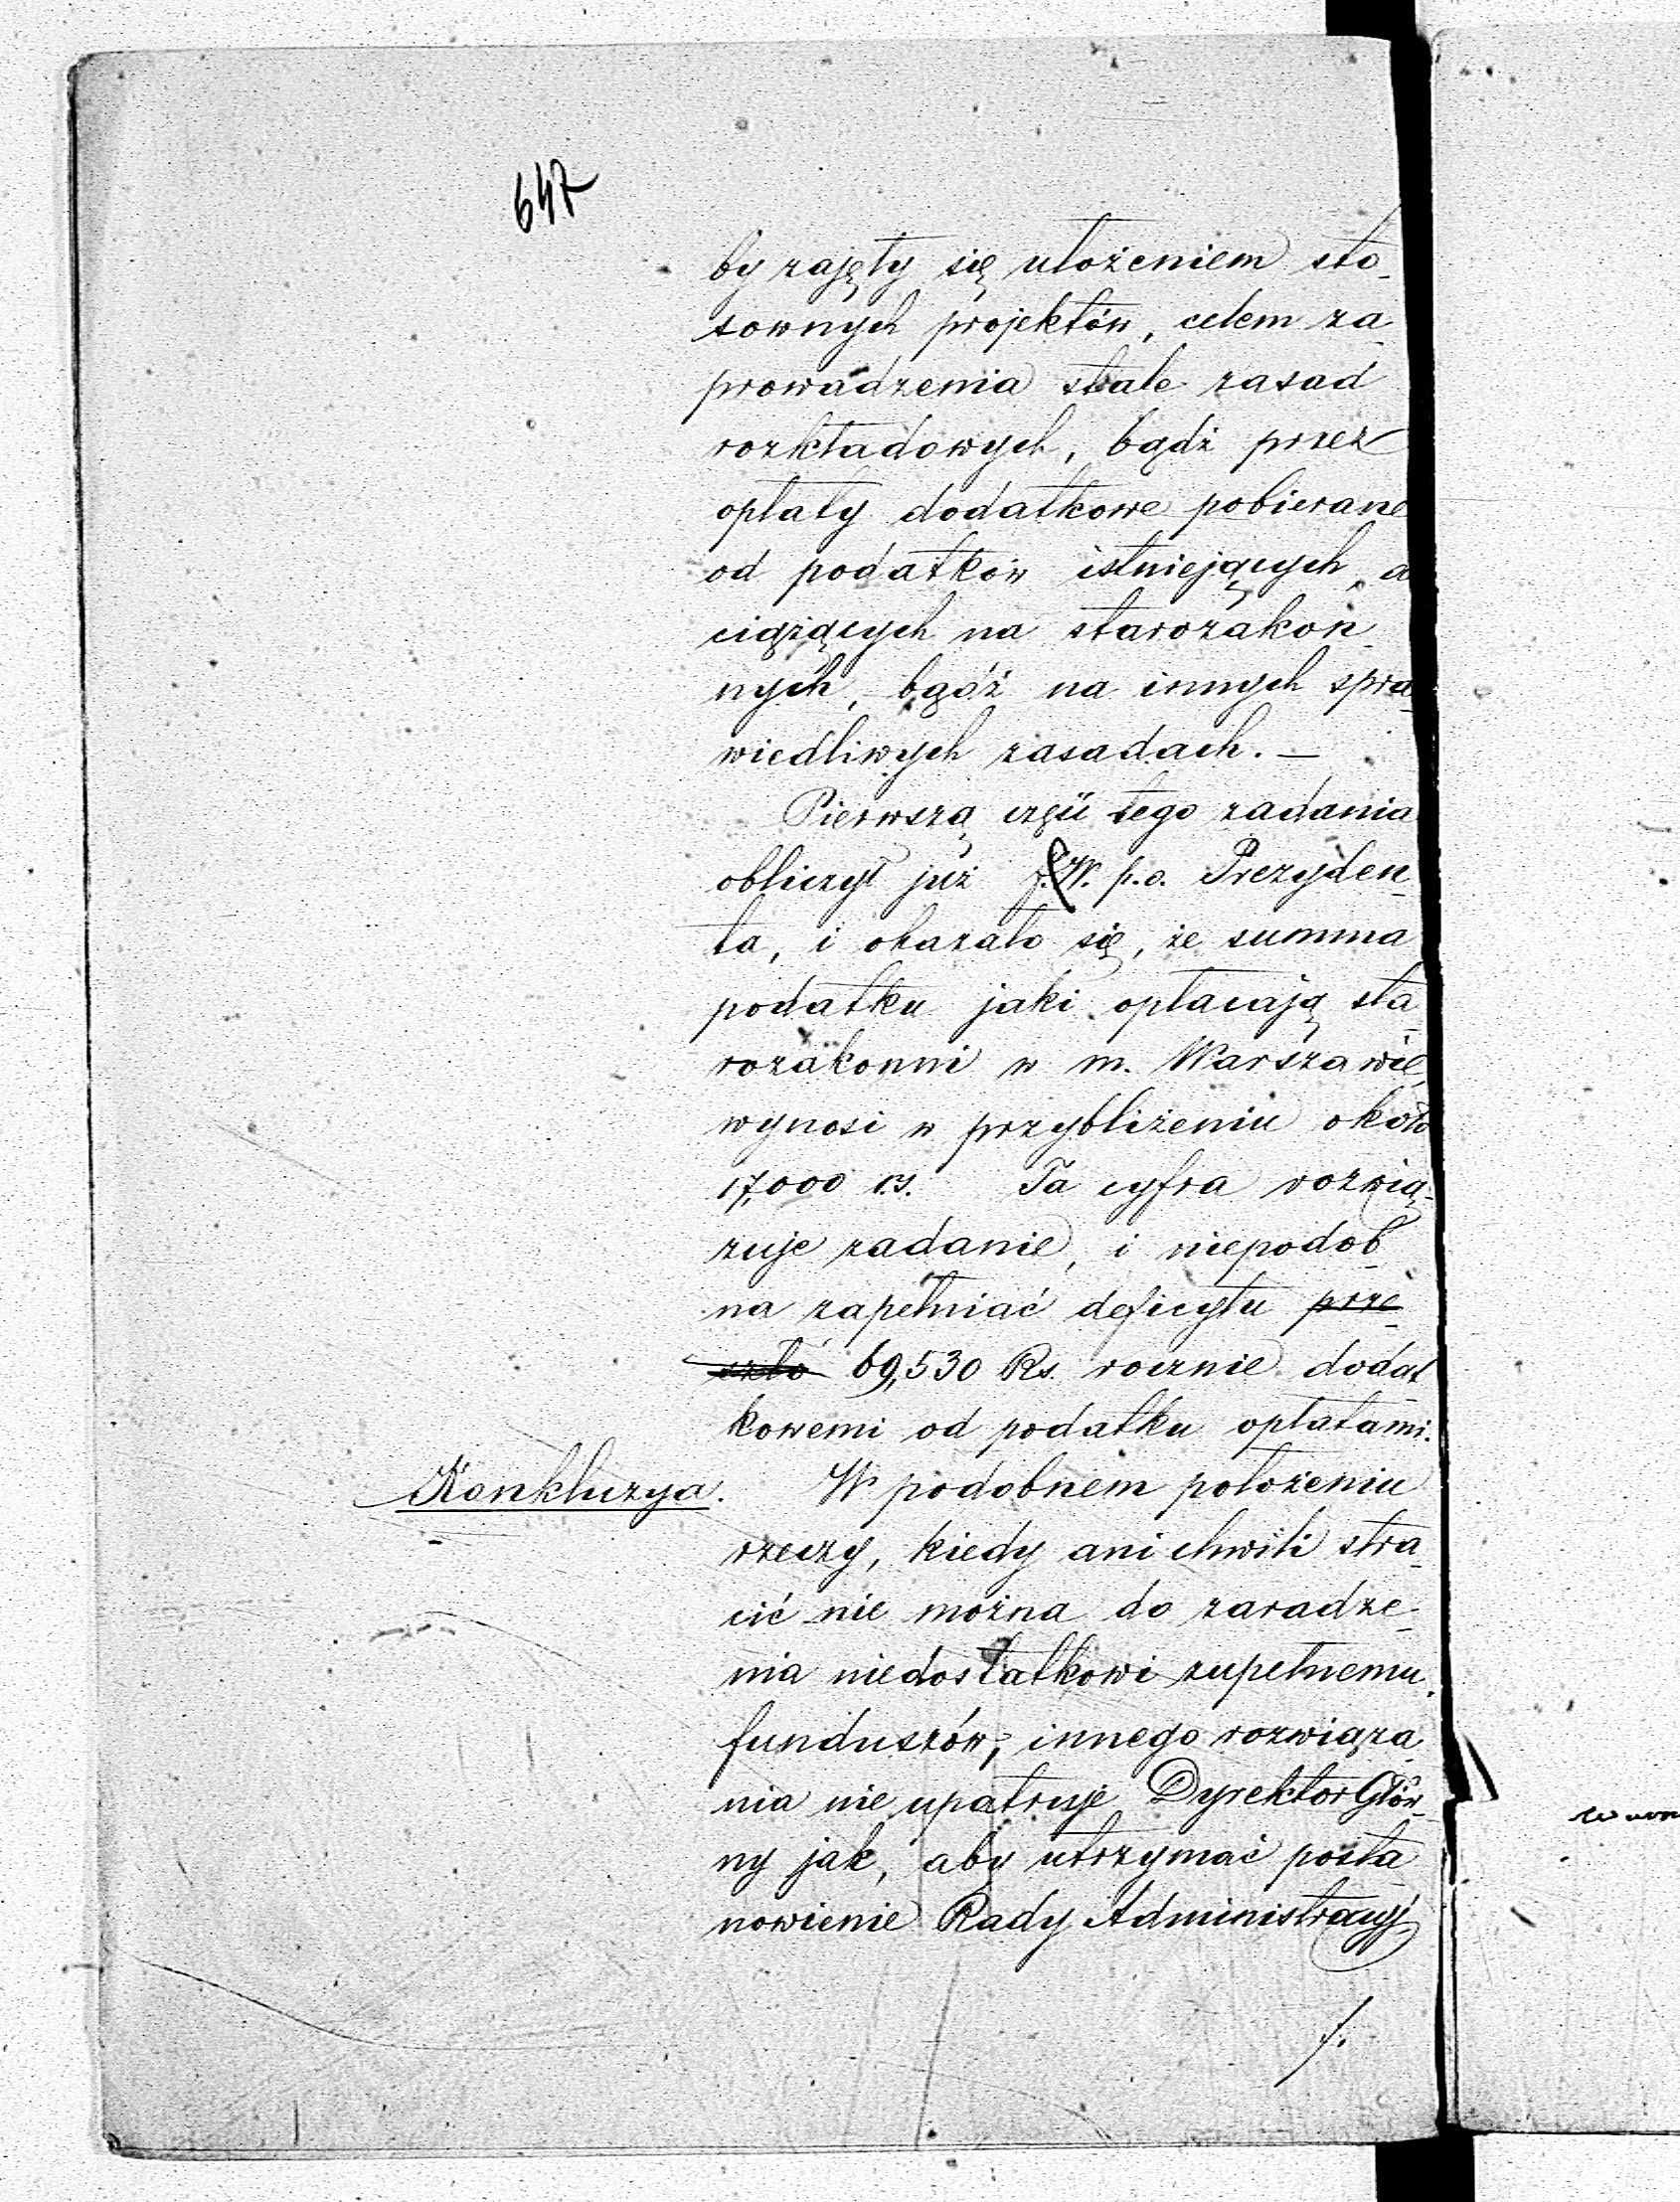 647
by zajęły się ułożeniem sto-
sownych projektów, celem za-
prowadzenia stale zasad
rozkładowych, bądź przez
opłaty dodatkowe pobierane
od podatków istniejących, a
ciążących na starozakon-
nych, bądź na innych spra-
wiedliwych zasadach. —
Pierwszą część tego zadania
obliczył już J.W. p.o. Prezyden-
ta, i okazało się, że summa
podatku jaki opłacają sta-
rozakonni w m. Warszawie,
wynosi w przybliżeniu około
17,000 rs. Ta cyfra rozwią-
zuje zadanie, i niepodob-
na zapełniać deficytu prze-
szło 69,530 Rs. rocznie dodat-
kowemi od podatku opłatami.
Konkluzya. W podobnem położeniu
rzeczy, kiedy ani chwili stra-
cić nie można do zaradze-
nia niedostatkowi zupełnemu
funduszów, innego rozwiąza-
nia nie upatruje Dyrektor Głów-
ny jak, aby utrzymać posta-
nowienie Rady Administracyj